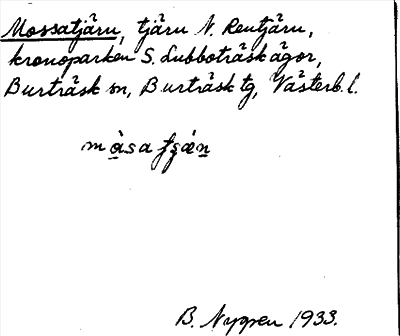 Mossatjärn, tjärn N. Rentjärn,
kronoparken S. Lubboträsk ägor,
Burträsk sn, Burträsk tg, Västerb. l.
B. Nygren 1933.